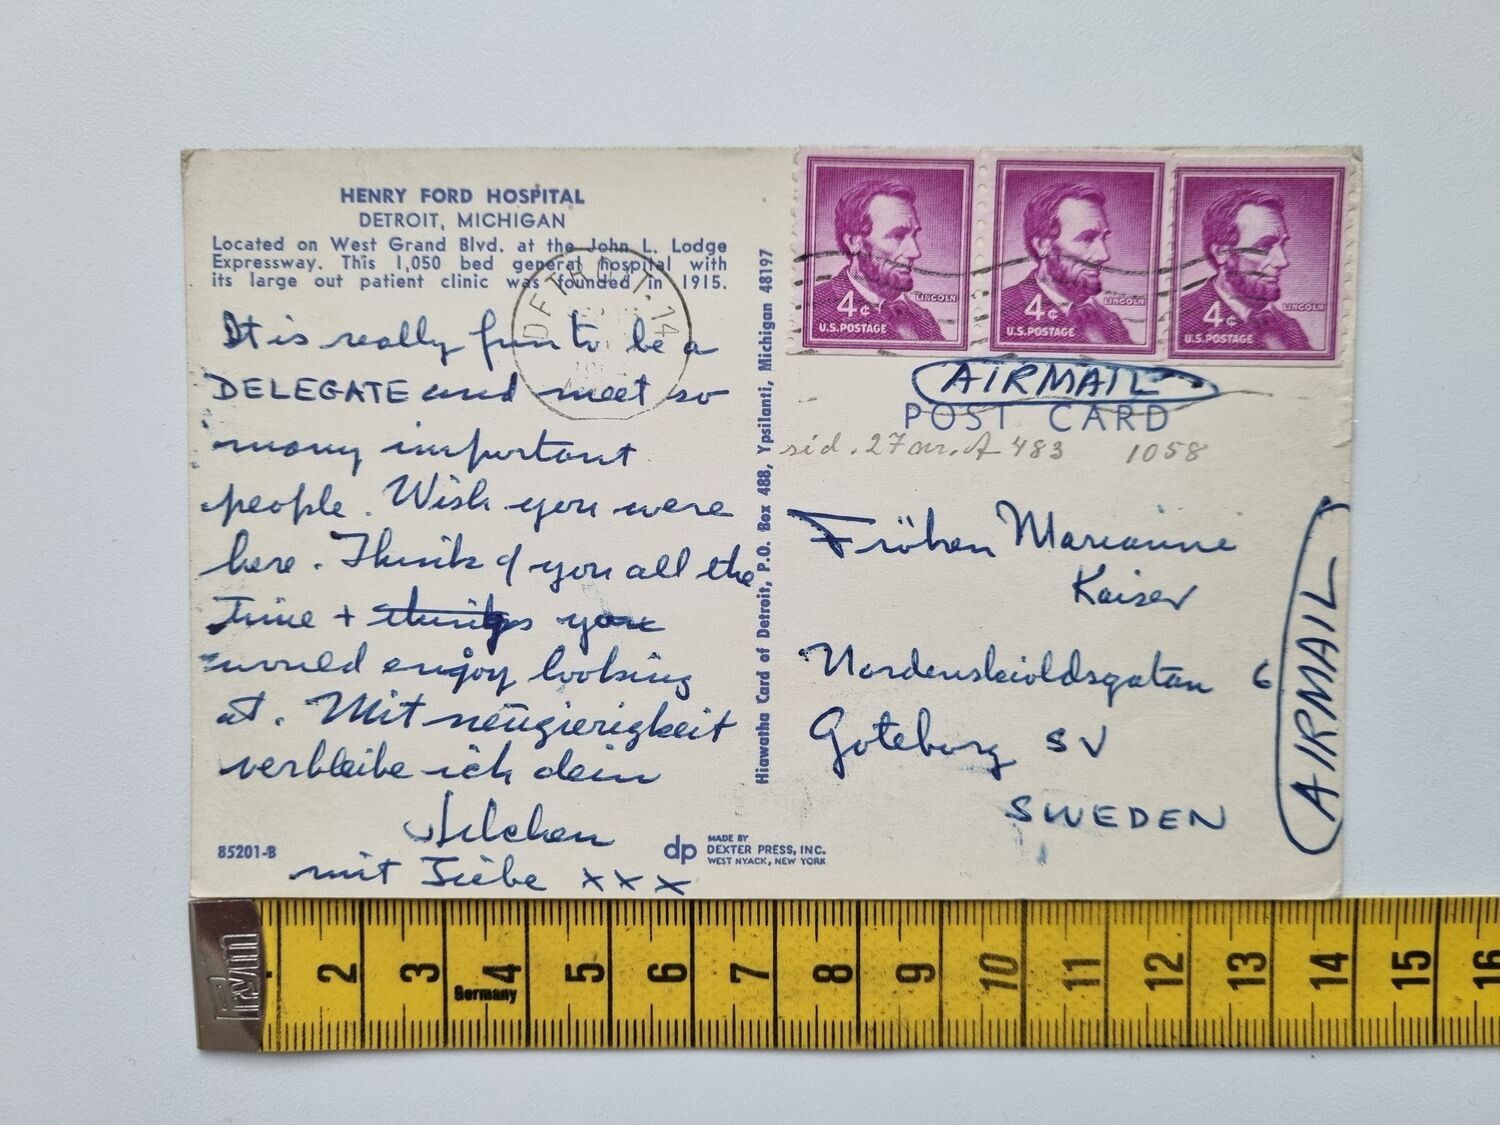 HENRY FORD HOSPITAL
DETROIT, MICHIGAN
Located on West Grand Blvd. at the John L. Lodge
Expressway. This 1,050 bed general hospital with
its large out patient clinic was founded in 1915.
It is really fun to be a
DELEGATE and meet so
many important
people. Wish you were
here. Think of you all the
time + things you
would enjoy looking
at. Mit neugierigkeit
verbleibe ich dein
mit Liebe xxx
85201-B
dp
MADE BY
DEXTER PRESS, INC.
WEST NYACK, NEW YORK
Hiawatha Card of Detroit, P.O. Box 488, Ypsilanti, Michigan 48197
DETROIT. 14
4¢ LINCOLN
U.S. POSTAGE
4¢ LINCOLN
U.S. POSTAGE
4¢ LINCOLN
U.S. POSTAGE
AIRMAIL
POST CARD
sid. 27 nr. A 483 1058
Fröken Marianne
Kaiser
Nordenskioldsgatan 6
Goteborg SV
SWEDEN
AIRMAIL
Prym
2 3 4 5 6 7 8 9 10 11 12 13 14 15 16
Germany